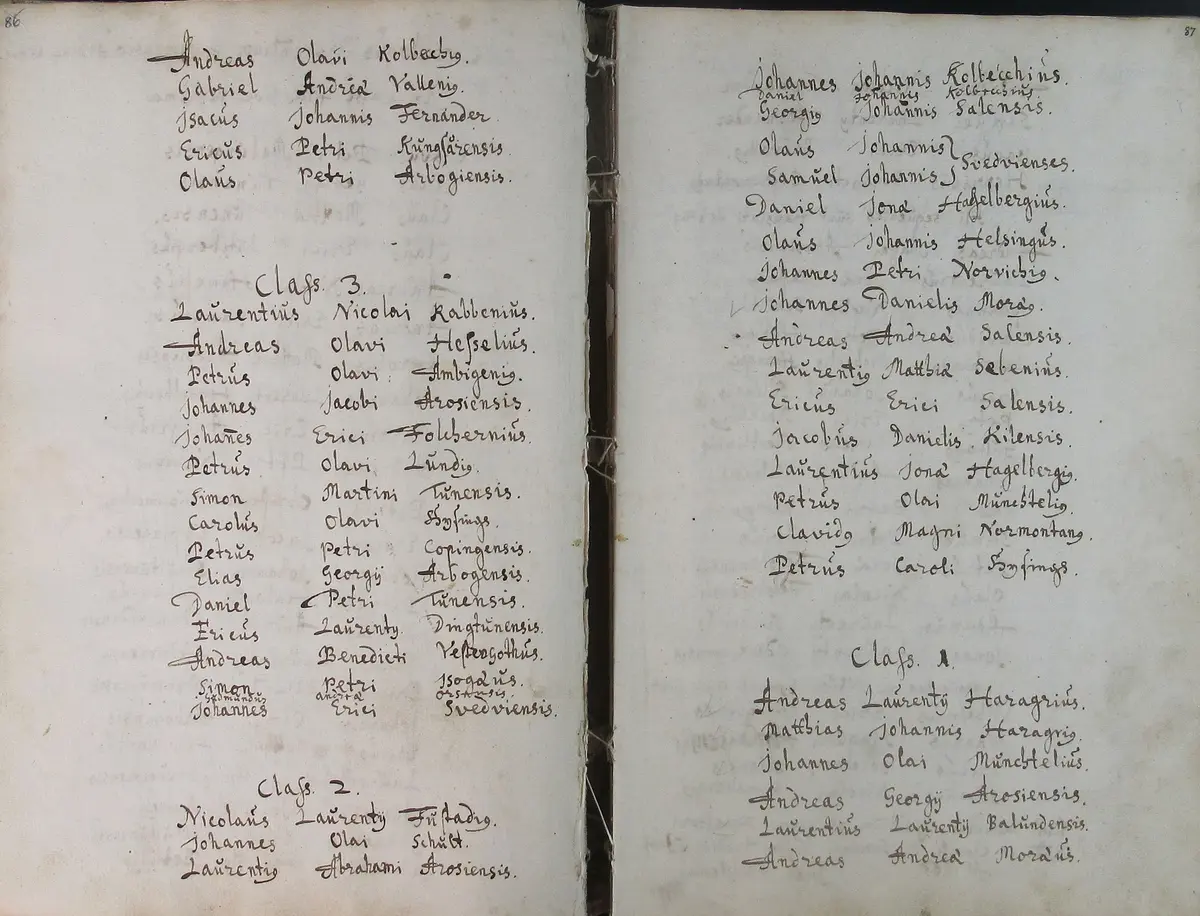 86
Andreas Olavi Kolbechiꝰ.
Gabriel Andreæ Valleniꝰ.
Jsacus Johannis Fernander.
Ericus Petri Kungsårensis.
Olaus Petri Arbogiensis.
Class. 3.
Laurentius Nicolai Rabbenius.
Andreas Olavi Hesselius.
Petrus Olavi Ambigeniꝰ.
Johannes Jacobi Arosiensis.
Johan̄es Erici Folchernius.
Petrus Olavi Lundiꝰ.
Simon Martini Tunensis.
Carolus Olavi Hysings.
Petrus Petri Copingensis.
Elias Georgij Arbogensis.
Daniel Petri Tunensis.
Ericus Laurenty Dingtunensis.
Andreas Benedicti Vestrogothus.
Simon Petri Isogæus.
Sigmundus Andreæ Orsensis.
Johannes Erici Svedviensis.
Class. 2.
Nicolaus Laurentij Fistadiꝰ.
Johannes Olai Schult.
Laurentiꝰ Abrahami Arosiensis.
87
Johannes Johannis Kolbecchius.
Daniel Johannis Kolbecchius
Georgiꝰ Johannis Salensis.
Olaus Johannis
Svedvienses.
Samuel Johannis
Daniel Jonæ Hagelbergius.
Olaus Johannis Helsingus.
Johannes Petri Norvichiꝰ.
Johannes Danielis Moræꝰ.
Andreas Andreæ Salensis.
Laurentiꝰ Matthiæ Sebenius.
Ericus Erici Salensis.
Jacobus Danielis Kilensis.
Laurentius Jonæ Hagelbergiꝰ.
Petrus Olai Munchteliꝰ.
Clavidꝰ Magni Normontanꝰ.
Petrus Caroli Hysings.
Class. 1.
Andreas Laurentij Haragrius.
Matthias Johannis Haragriꝰ.
Johannes Olai Munchtelius.
Andreas Georgij Arosiensis.
Laurentius Laurentij Balundensis.
Andreas Andreæ Moræus.